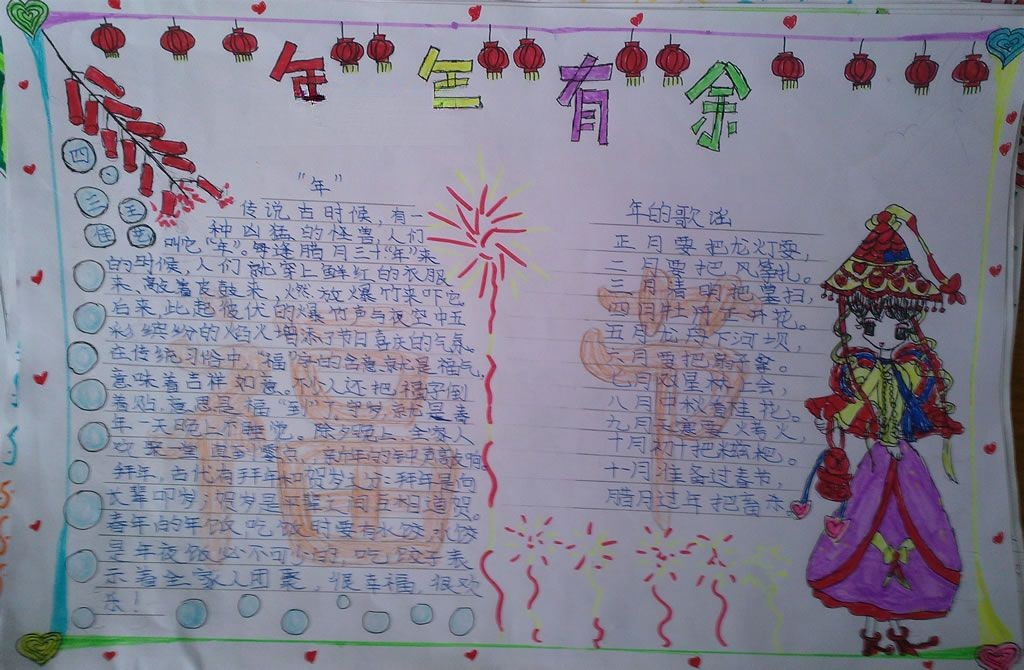 年年有余
四
三 王
佳
“年”
传说古时候,有一
种凶猛的怪兽,人们
叫它“年”。每逢腊月三十“年”来
的时候,人们就穿上鲜红的衣服
来,敲着皮鼓来,燃放爆竹来吓它
后来,此起彼伏的爆竹声与夜空中五
彩缤纷的焰火增添了节日喜庆的气氛。
在传统习俗中,“福”字的含意就是福气。
意味着吉祥如意。不少人还把福字倒
着贴,意思是福“到”了。守岁就是春
年一天晚上不睡觉。除夕晚上,全家人
欢聚一堂,直到零点,
拜年,古代有拜年和贺岁之分:拜年是向
长辈叩岁;贺岁是平辈之间互相道贺。
春年的年饭,吃饭时要有水饺,水饺
是年夜饭必不可少的,吃饺子表
示着全家人团聚,很幸福,很欢
乐!
年的歌谣
正月要把龙灯耍,
二月要把风筝扎。
三月清明把墓扫,
四月牡丹正开花。
五月龙舟下河坝,
六月要把扇子拿。
七月双星林上会,
八月中秋看桂花。
九月天寒要烤火,
十月初十把糍粑。
十一月准备过春节,
腊月过年把猪杀。